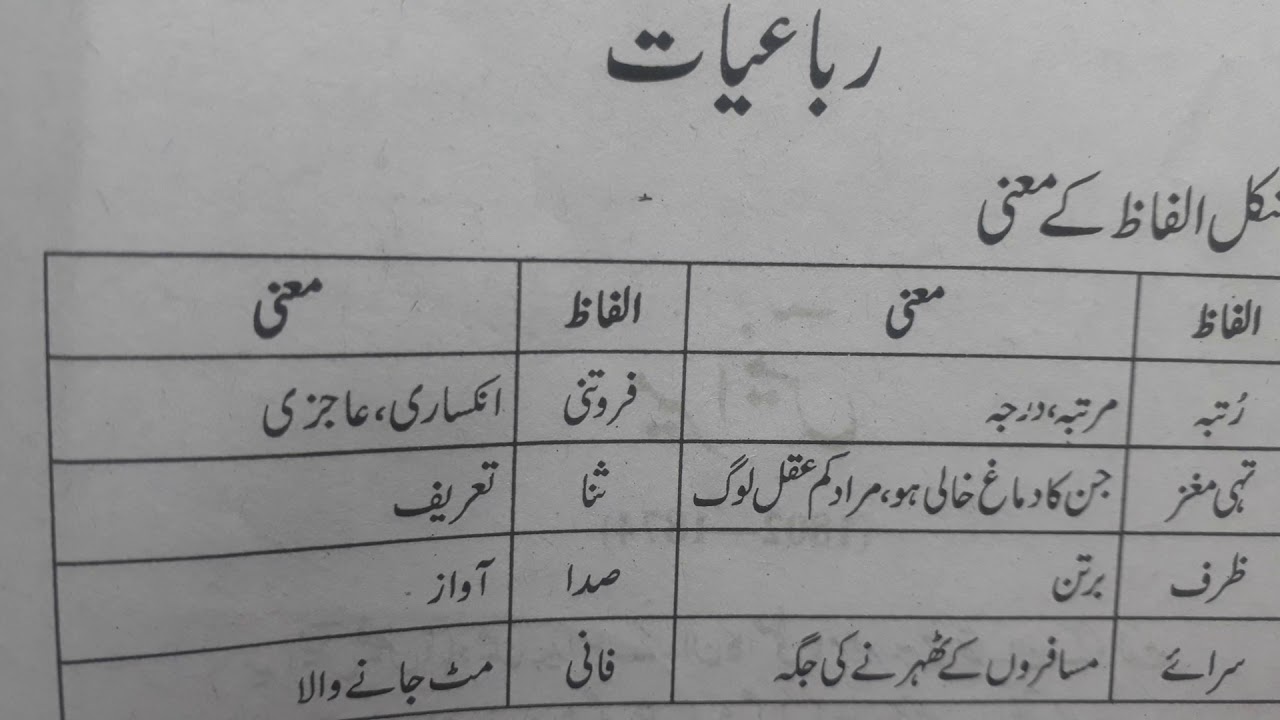 رباعیات
الفاظ کے معنی
الفاظ معنی الفاظ معنی
رُتبہ مرتبہ، درجہ فروتنی انکساری، عاجزی
تہی مغز جن کا دماغ خالی ہو، مراد کم عقل لوگ ثنا تعریف
ظرف برتن صدا آواز
سرائے مسافروں کے ٹھہرنے کی جگہ فانی مٹ جانے والا